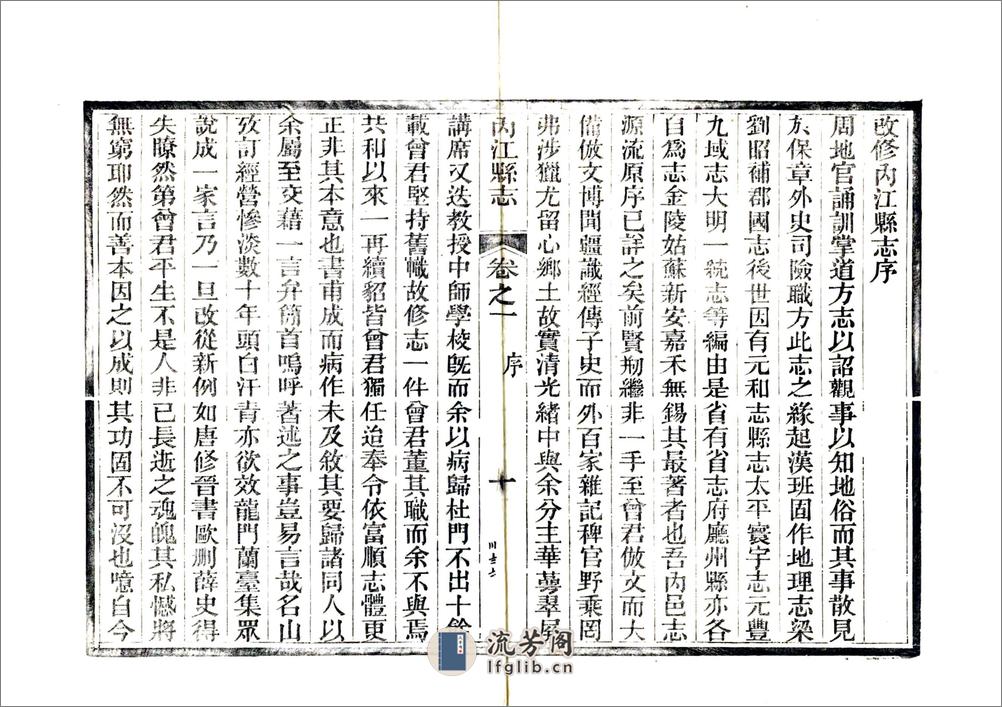 改修內江縣志序
周地官誦訓掌道方志以詔觀事以知地俗而其事散見
於保章外史司險職方此志之緣起漢班固作地理志梁
劉昭補郡國志後世因有元和志縣志太平寰宇志元豐
九域志大明一統志等編由是省有省志府廳州縣亦各
自為志金陵姑蘇新安嘉禾無錫其最著者也吾內邑志
源流原序已詳之矣前賢刱繼非一手至曾君倣文而大
備倣文博聞彊識經傳子史而外百家雜記稗官野乘罔
弗涉獵尤留心鄉土故實清光緒中與余分主華萼翠屏
內江縣志
卷之一
序
十
講席又迭教授中師學校旣而余以病歸杜門不出十餘
載曾君堅持舊幟故修志一件曾君董其職而余不與焉
共和以來一再續貂皆曾君獨任迨奉令依富順志體更
正非其本意也書甫成而病作未及敘其要歸諸同人以
余屬至交藉一言弁簡首嗚呼著述之事豈易言哉名山
攷訂經營慘淡數十年頭白汗青亦欲效龍門蘭臺集眾
說成一家言乃一旦改從新例如唐修晉書歐刪薛史得
失瞭然第曾君平生不是人非已長逝之魂魄其私憾將
無窮耶然而善本因之以成則其功固不可沒也噫自今
流芳阁
lfglib.cn